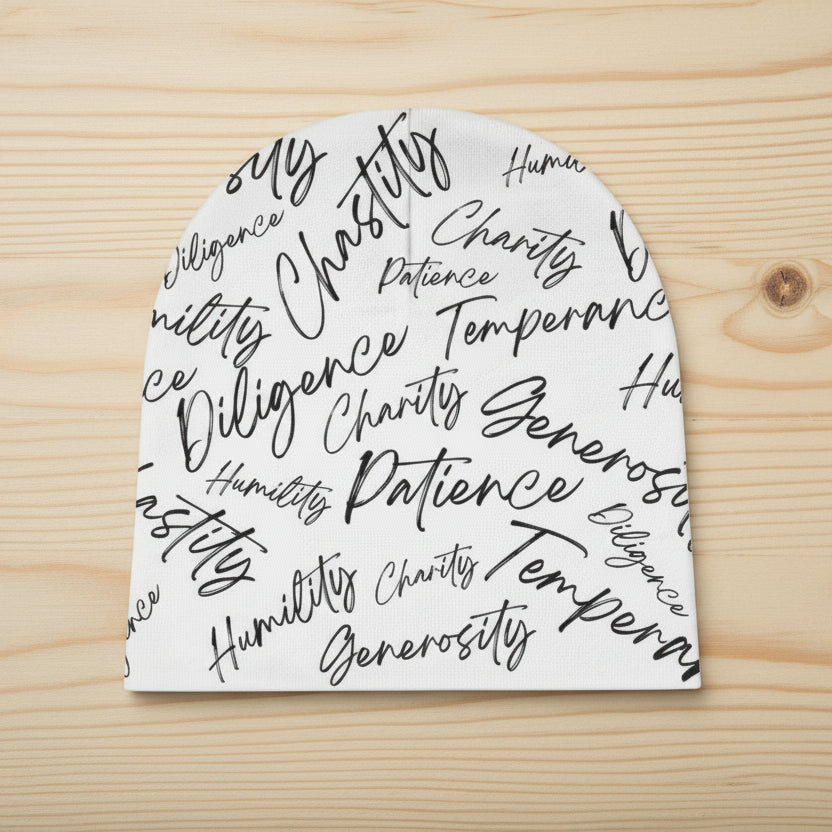 osity
Chastity
Humi
Diligence
Charity
D
Patience
mility
Temperanc
ce
Diligence
Charity
Hu
Generosity
Humility
Patience
astity
Diligence
Temperan
ence
Humility
Charity
Generosity